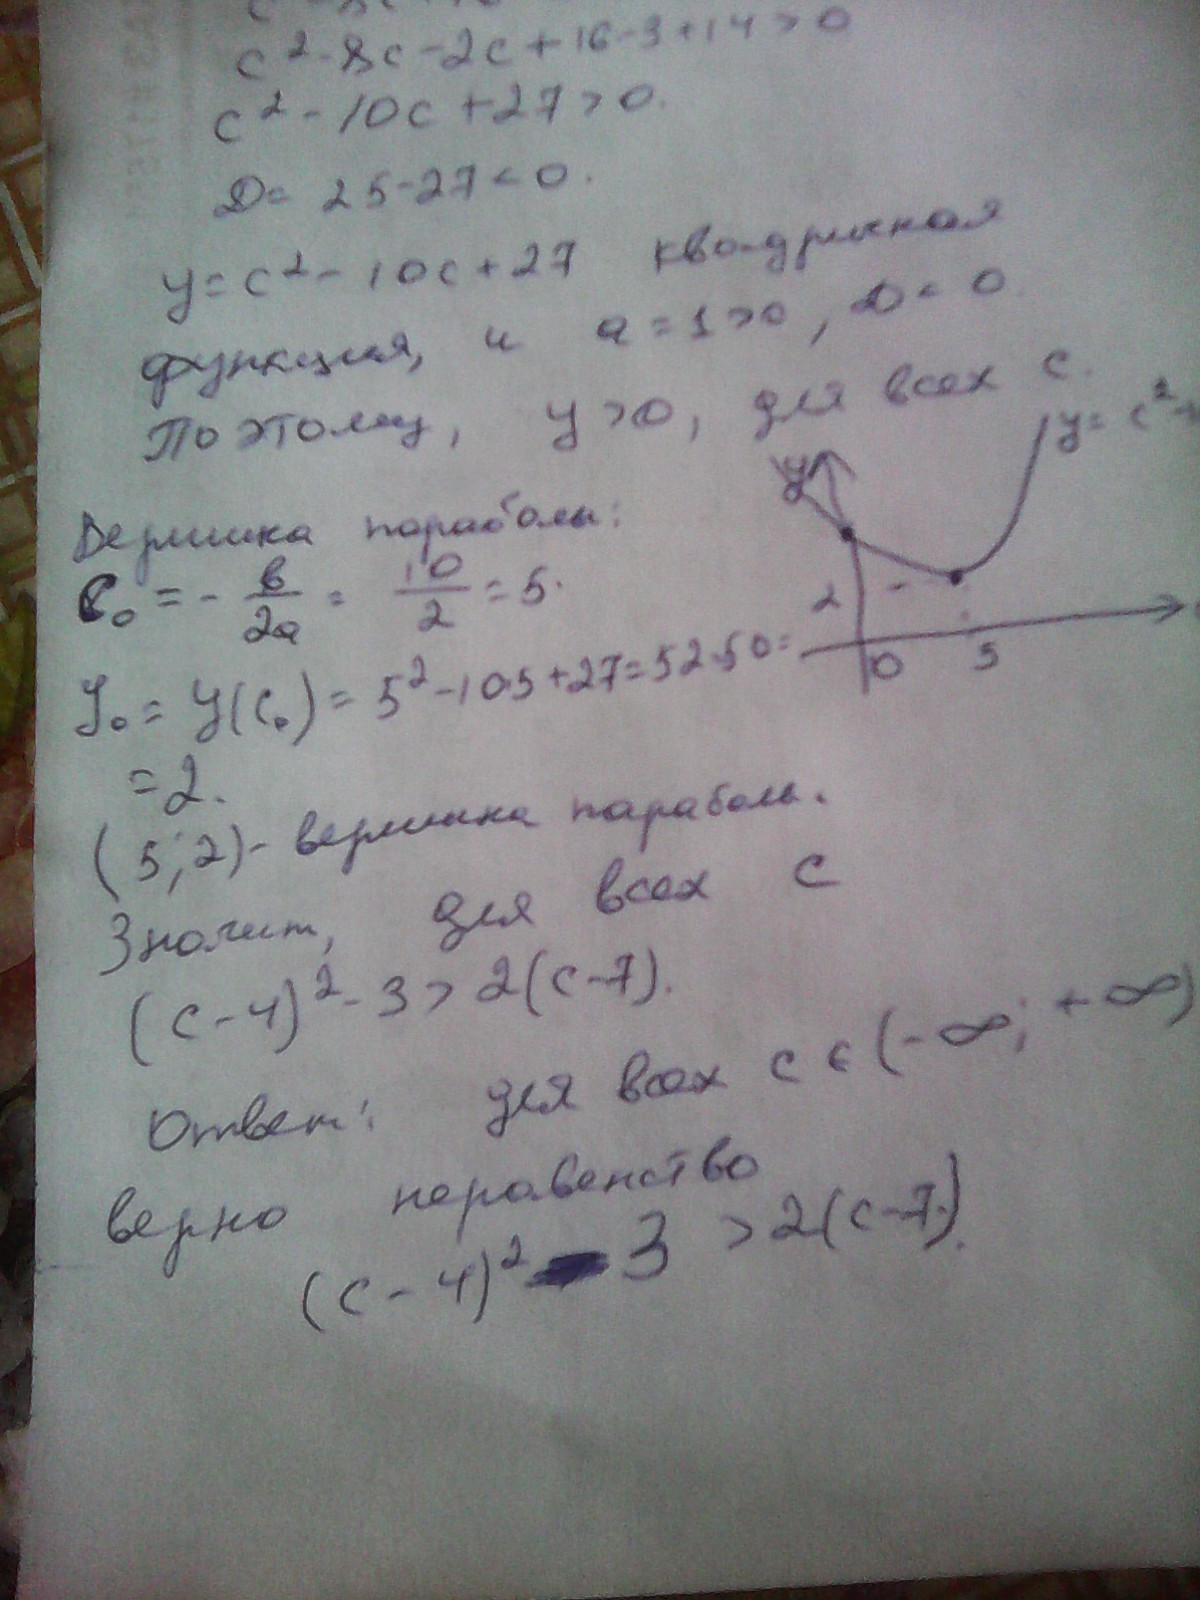 c² - 8c - 2c + 16 - 3 + 14 > 0
c² - 10c + 27 > 0.
D = 25 - 27 < 0.
y = c² - 10c + 27 квадричная
функция, и a = 1 > 0, D < 0.
Поэтому, y > 0, для всех c.
y = c² -
y
2
0
5
Вершина параболы:
c₀ = - в/2a = 10/2 = 5.
y₀ = y(c₀) = 5² - 10·5 + 27 = 52 - 50 =
= 2.
(5; 2) - вершина параболы.
Значит, для всех c
(c - 4)² - 3 > 2(c - 7).
Ответ: для всех c ∈ (-∞; +∞)
верно неравенство
(c - 4)² - 3 > 2(c - 7).